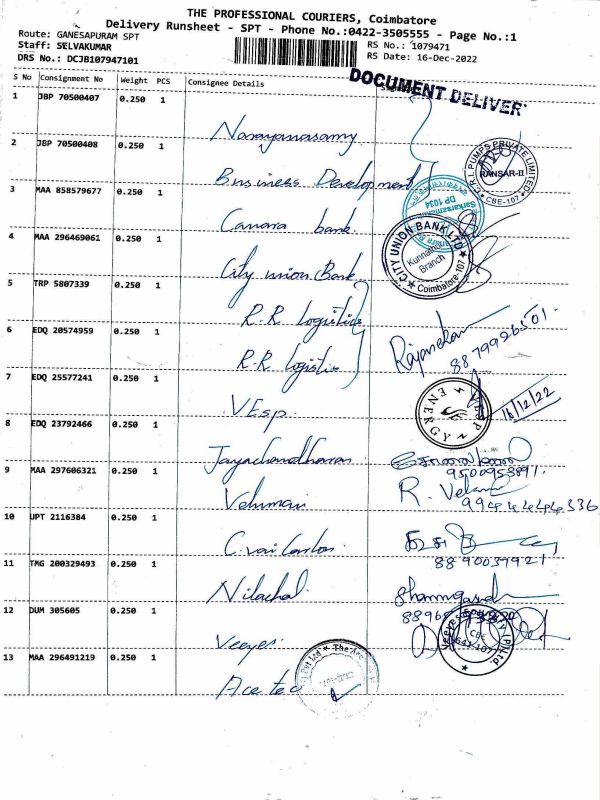 THE PROFESSIONAL COURIERS, Coimbatore
Delivery Runsheet - SPT - Phone No.:0422-3505555 - Page No.:1
Route: GANESAPURAM SPT
RS No.: 1079471
Staff: SELVAKUMAR
RS Date: 16-Dec-2022
DRS No.: DCJB107947101
DOCUMENT DELIVER
S No Consignment No Weight PCS Consignee Details
1 JBP 70500407 0.250 1
Narayanasamy
2 JBP 70500408 0.250 1
Business Development
C.R.I. PUMPS PRIVATE LIMITED
RANSAR-II
CBE-107
3 MAA 858579677 0.250 1
Canara bank
DP 1034
4 MAA 296469061 0.250 1
City union Bank
CITY UNION BANK LTD
Kunnathur
Branch
Coimbatore-107
5 TRP 5807339 0.250 1
R.R logistics
6 EDQ 20574959 0.250 1
R.R logistic
Rajasekar
8879926501
7 EDQ 25577241 0.250 1
VEsp
VESP ENERGY
16/12/22
8 EDQ 23792466 0.250 1
Jayachandharan
9500953891
9 MAA 297606321 0.250 1
Velumani
R. Velu
9944444336
10 UPT 2116384 0.250 1
8890037921
11 TMG 200329493 0.250 1
Nilachal
12 DUM 305605 0.250 1
Veeyes
CBE
641 107
13 MAA 296491219 0.250 1
Ace tec